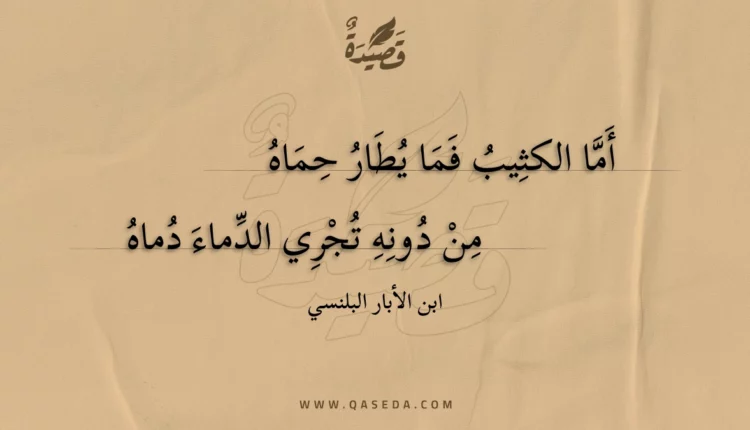 قَصِيْدَةٌ
أَمَّا الكثِيبُ فَمَا يُطَارُ حِمَاهُ
مِنْ دُونِهِ تُجْرِي الدِّماءَ دُماهُ
ابن الأبار البلنسي
WWW.QASEDA.COM